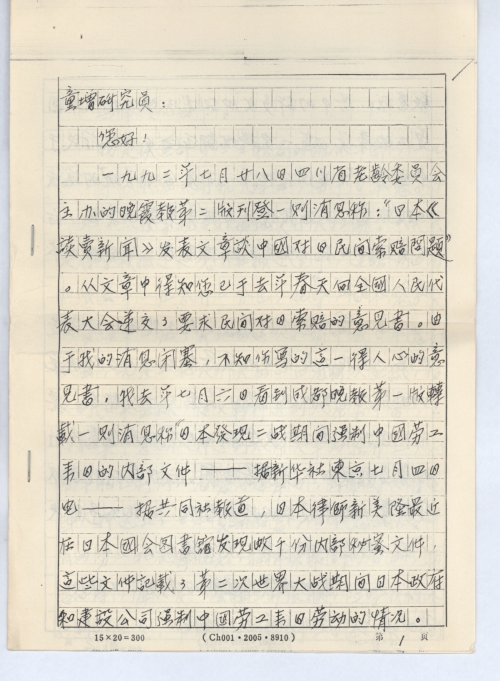 童增研究员：
您好！
一九九二年七月廿八日四川省老龄委员会
主办的晚霞报第二版刊登一则消息称："日本《
读卖新闻》发表文章谈中國对日民间索赔问题"
。从文章中得知您已于去年春天向全國人民代
表大会递交了要求民间对日索赔的意見書。由
于我的消息闭塞，不知你写的这一得人心的意
見書，我去年七月六日看到成都晚報第一版轉
载一则消息称"日本發现二战期间强制中國劳工
来日的内部文件——据新华社東京七月四日
电——据共同社報道，日本律師新美隆最近
在日本國会图書館发现数千份内部秘密文件，
这些文件記載了第二次世界大战期间日本政府
和建設公司强制中國劳工来日劳动的情况。
15×20=300 (Ch001·2005·8910) 第 1 页